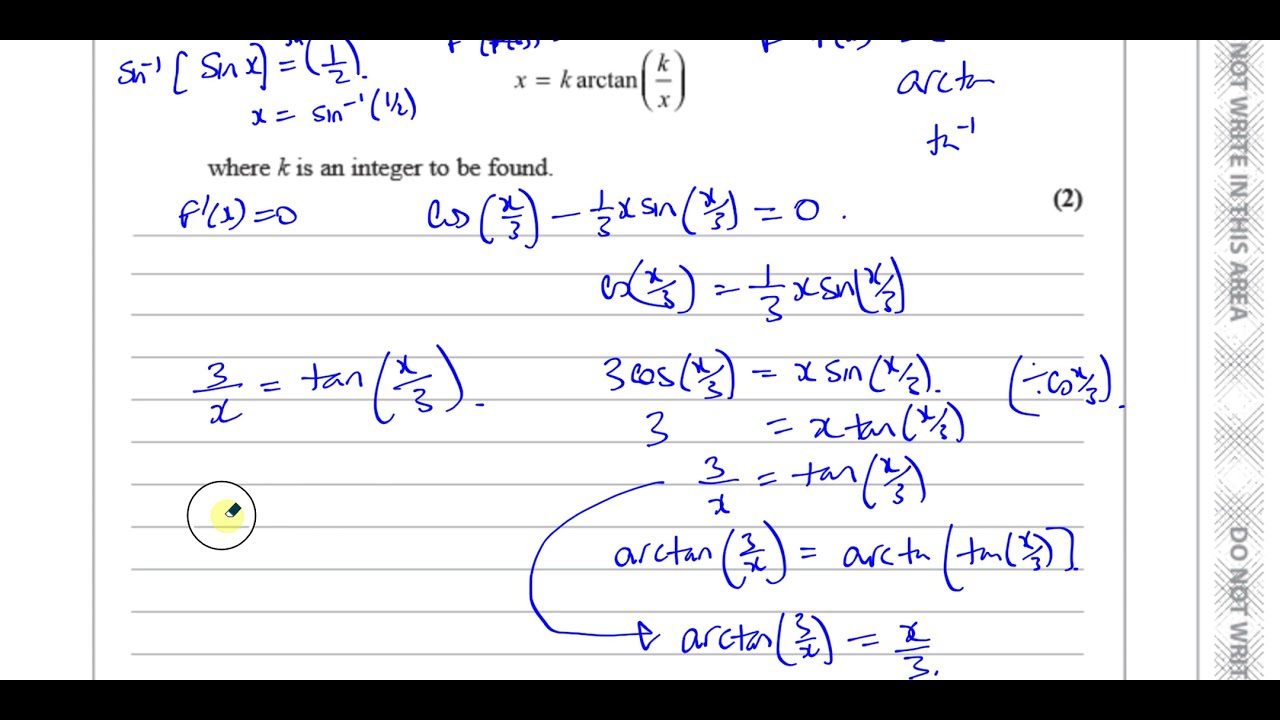 sin⁻¹[sin x] = (1/2).
x = sin⁻¹(1/2)
x = k arctan(k/x)
arctan
tn⁻¹
where k is an integer to be found.
(2)
f'(x)=0
Cos(x/3) − 1/3 x sin(x/3) = 0.
Cos(x/3) = 1/3 x sin(x/3)
3/x = tan(x/3).
3cos(x/3) = x sin(x/3). (÷cos x/3).
3 = x tan(x/3)
3/x = tan(x/3)
arctan(3/x) = arctn[tan(x/3)].
arctan(3/x) = x/3.
NOT WRITE IN THIS AREA
DO NOT WRIT